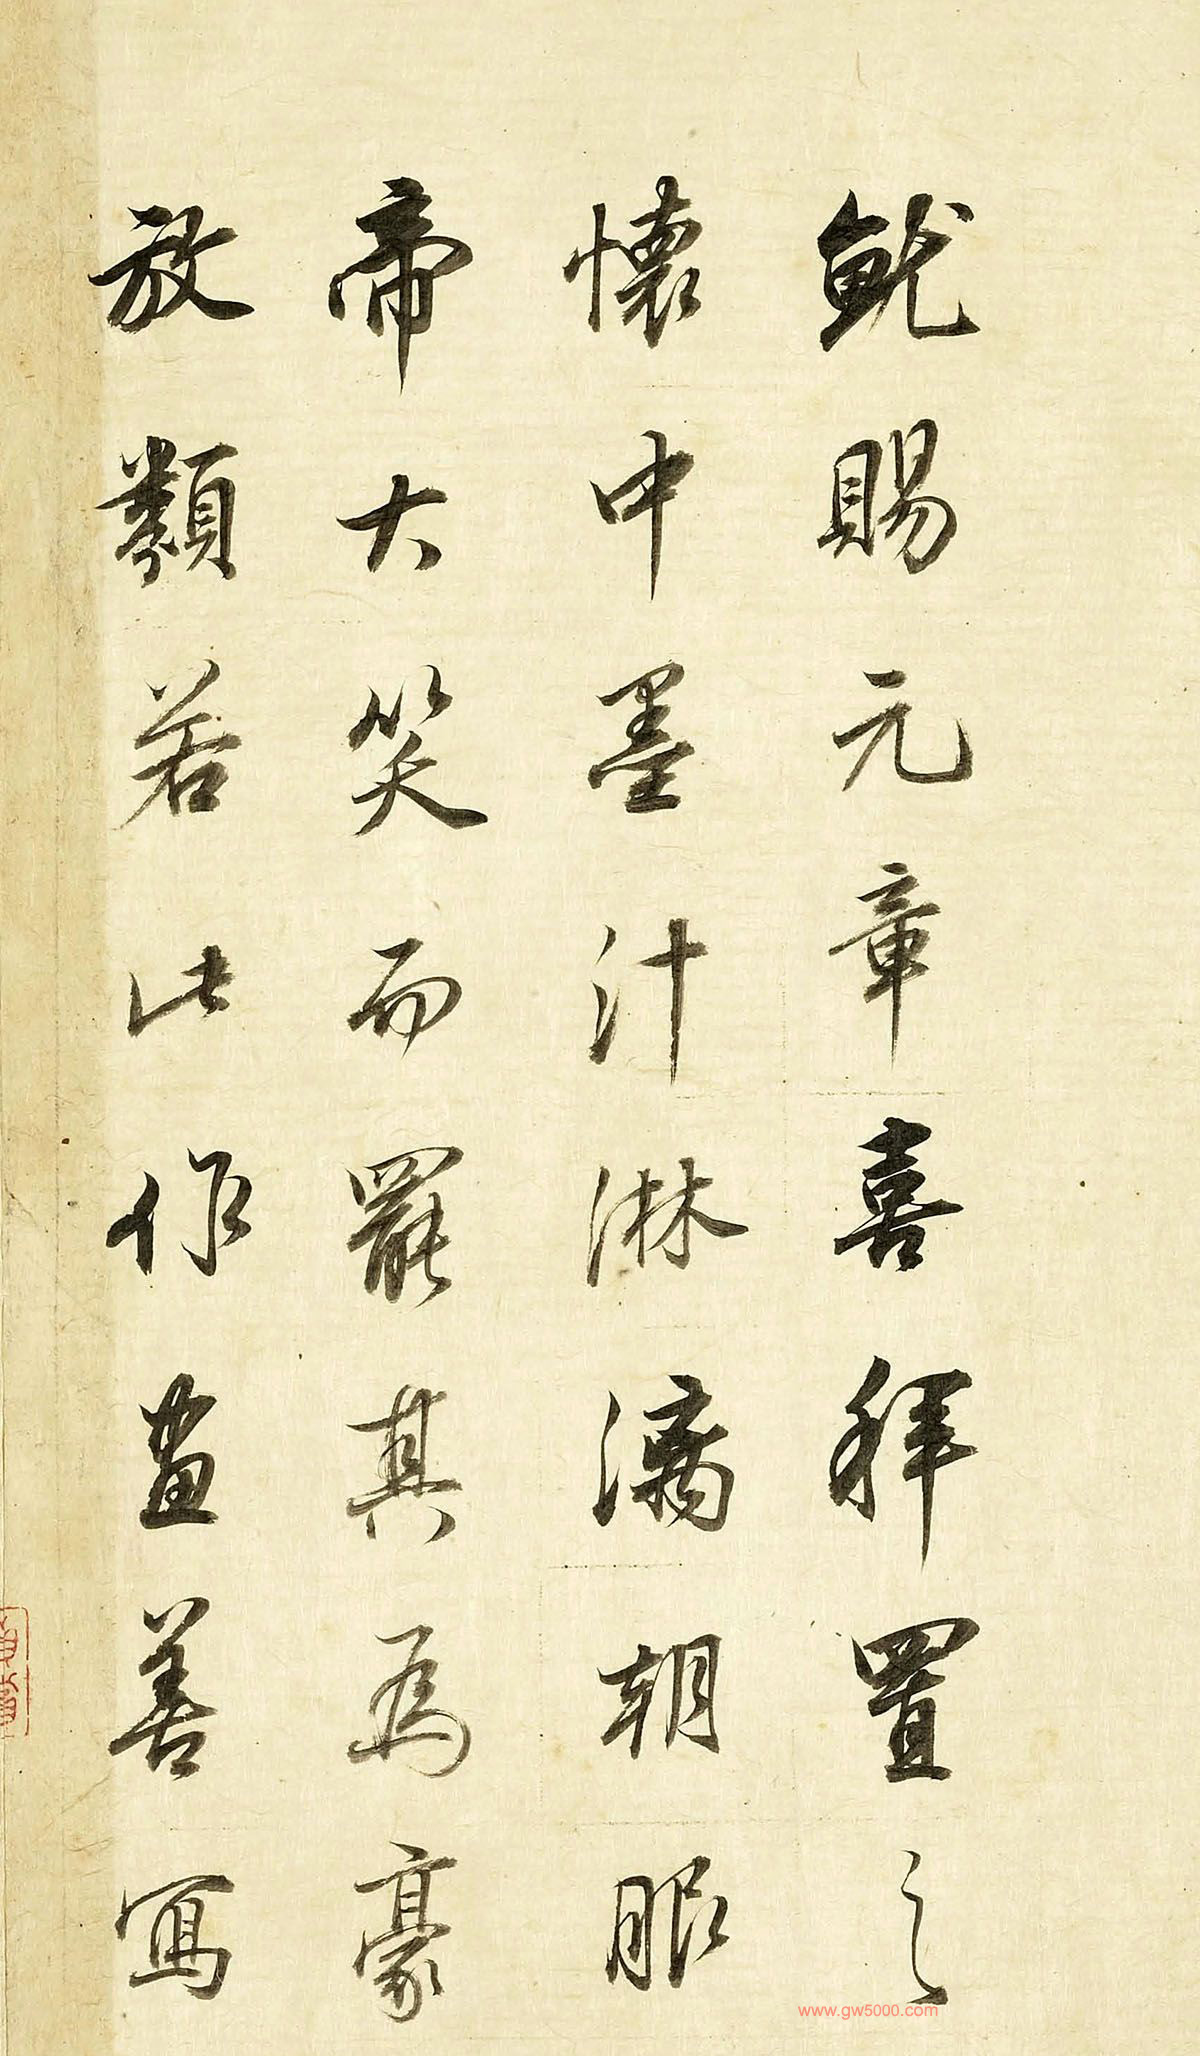 就賜元章喜拜置之
懷中墨汁淋漓朝服
帝大笑而罷其為豪
放類若此作畫善寫
www.gw5000.com